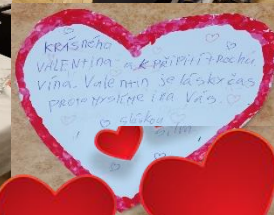 KRÁSNÉHO
VALENTINA A K PŘIPITÍ TROCHU
vína. Valentin je lásky čas
proto myslíme i na Vás.
S láskou